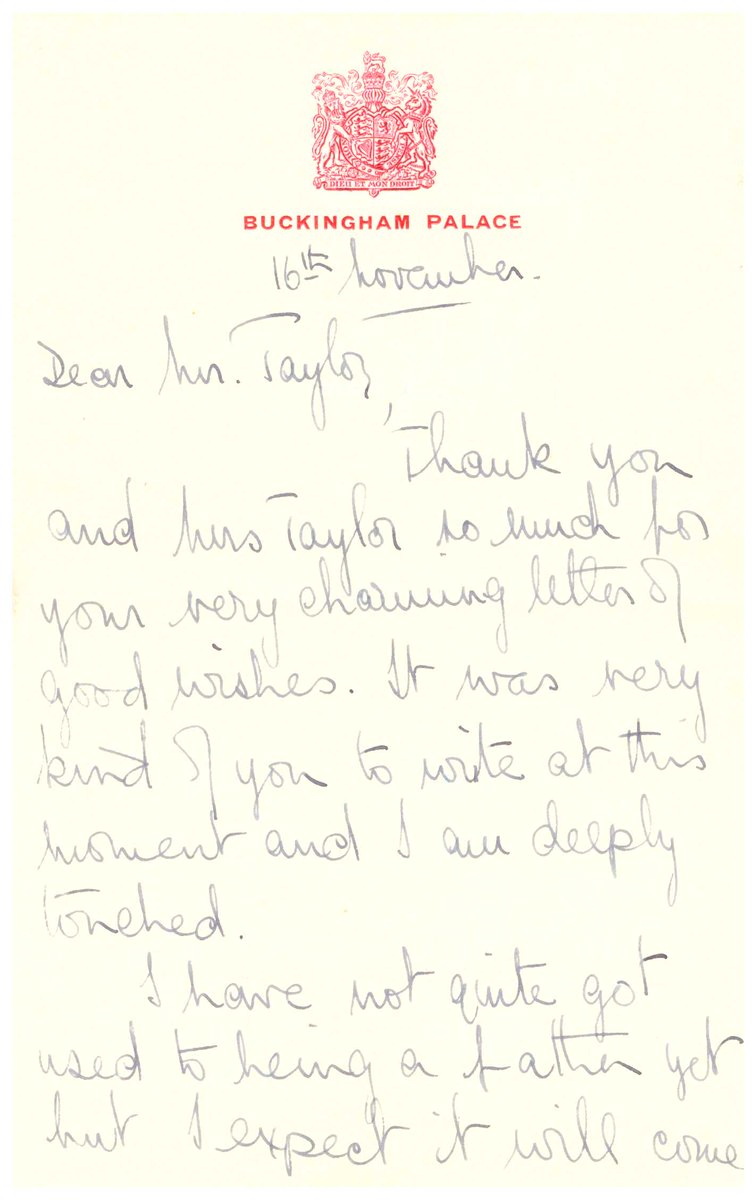 DIEU ET MON DROIT
BUCKINGHAM PALACE
16th November.
Dear Mr. Taylor,
Thank you
and Mrs Taylor so much for
your very charming letter of
good wishes. It was very
kind of you to write at this
moment and I am deeply
touched.
I have not quite got
used to being a father yet
but I expect it will come